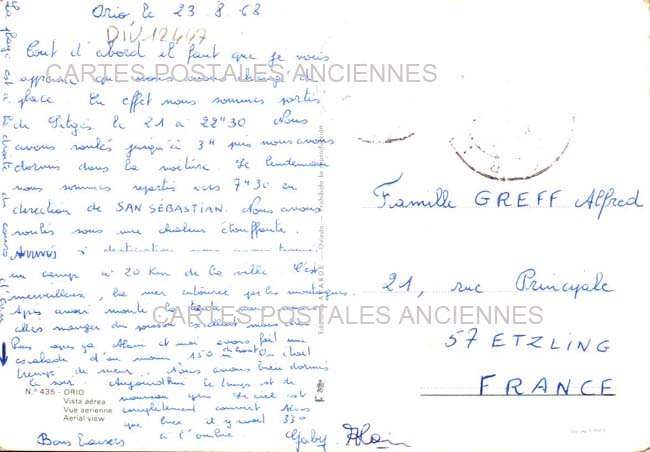 Orio, le 23-8-68
DIV12447
Tout d'abord il faut que je vous
apprenne que nous avons changé de
CARTES POSTALES ANCIENNES
place. En effet nous sommes partis
de Sitgès le 21 à 22h30 Nous
avons roulés jusqu'à 3H puis nous avons
dormis dans la voiture. Le lendemain
nous sommes repartis vers 7H30 en
direction de SAN SÉBASTIAN. Nous avons
roulés sous une chaleur étouffante.
Arrivés à destination nous
un camp à 20 Km de la ville. C'est
merveilleux, la mer entourée par les montagnes.
Après avoir monté la tente nous
allés manger du poisson
Puis après ça Alain et moi avons fait une
escalade d'au moins 150 m de haut. On était
trempé de sueur. Nous avons bien dormis
ce soir. Aujourd'hui le temps est de
nouveau gris. Le ciel est
complètement couvert Alors
que hier il y avait 33°
à l'ombre.
Bons Baisers
Gaby Alain
La plage est à droite
N.º 435 - ORIO
Vista aérea
Vue aerienne
Aerial view
Famille GREFF Alfred
21, rue Principale
CARTES POSTALES ANCIENNES
57 ETZLING
FRANCE